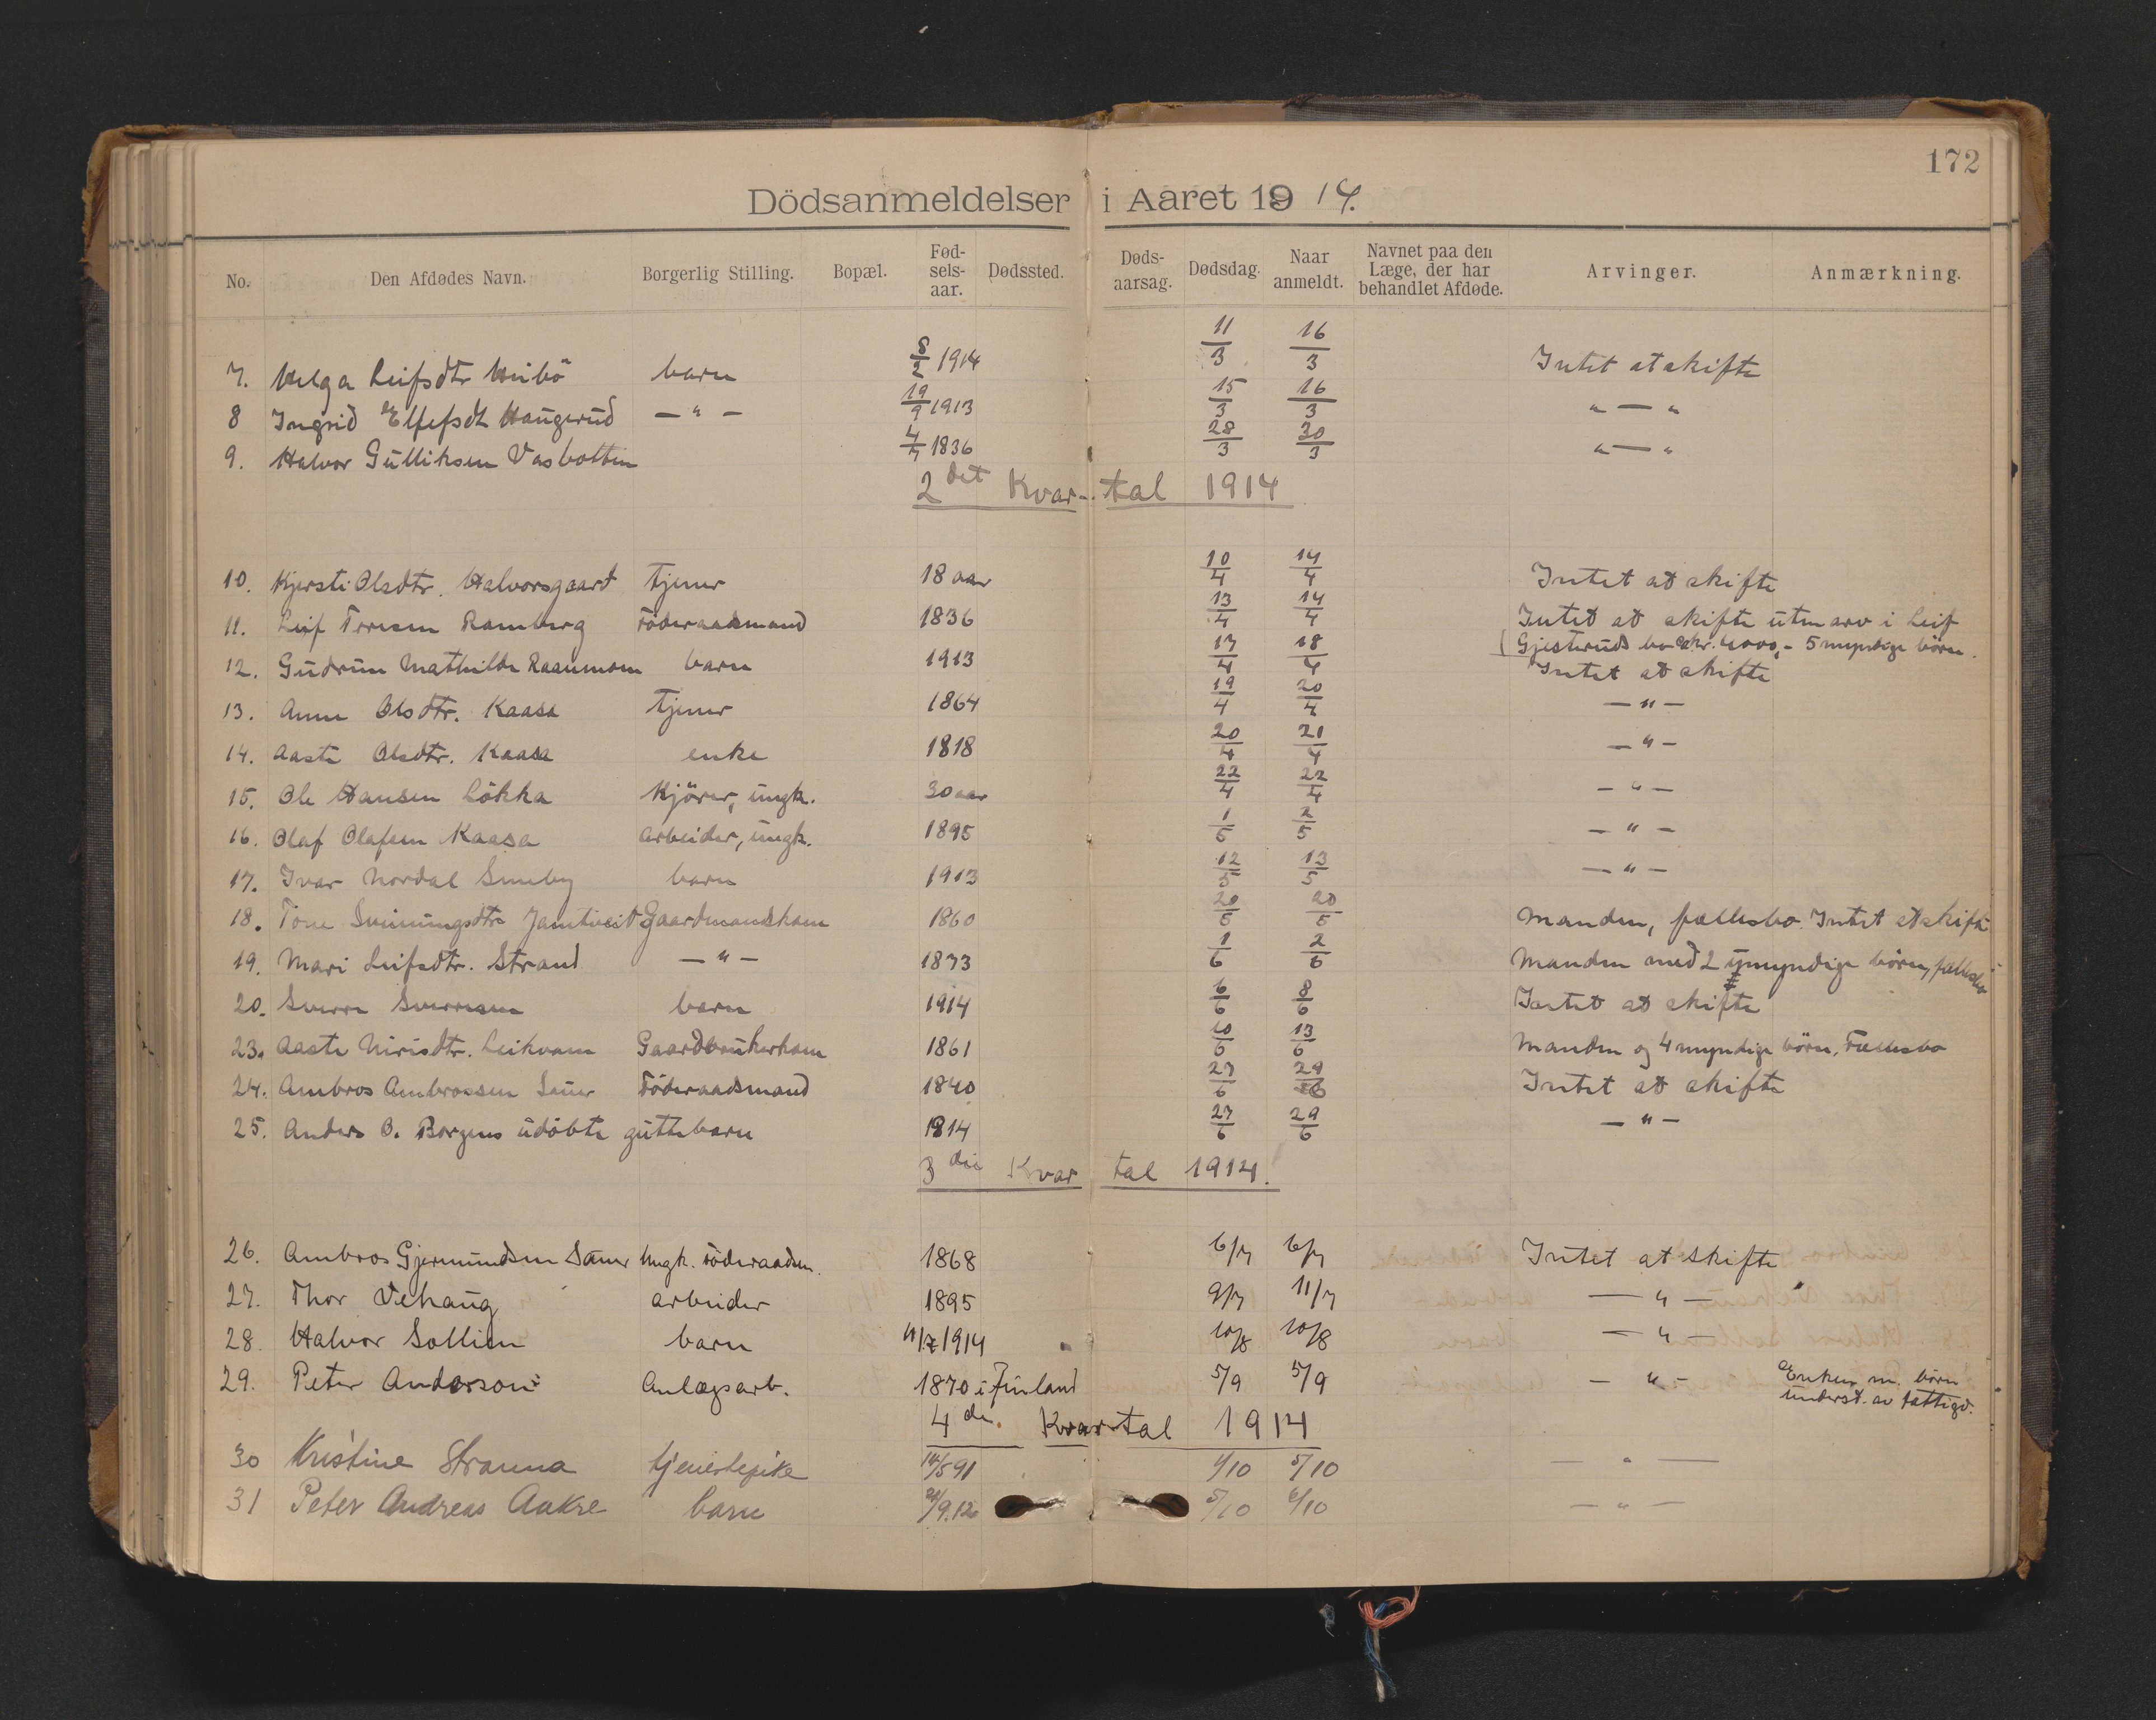 172
Dödsanmeldelser i Aaret 1914.
No. Den Afdødes Navn. Borgerlig Stilling. Bopæl. Fød-sels-aar. Dødssted. Døds-aarsag. Dødsdag. Naar anmeldt. Navnet paa den Læge, der har behandlet Afdøde. Arvinger. Anmærkning.
7. Helga Leifsdtr Huibö barn 8/2 1914 11/3 16/3 Intet at skifte
8 Ingrid Elfefsdt Haugerud — " — 19/9 1913 15/3 16/3 " — "
9. Halvor Gulliksen Vasbotten 4/7 1836 28/3 30/3 " — "
2det Kvar-tal 1914
10. Kjersti Olsdtr. Halvorsgaard tjener 18 aar 10/4 14/4 Intet at skifte
11. Leif Ramberg Föderaadsmand 1836 13/4 14/4 Intet at skifte uten arv i Leif
Gjesteruds bo kr. 4000,- 5 myndige börn.
12. Gudrun Mathilde Raanmoen barn 1913 17/4 18/4 Intet at skifte
13. Anne Olsdtr. Kaasa tjener 1864 19/4 20/4 — " —
14. Aaste Olsdtr. Kaasa enke 1818 20/4 21/4 — " —
15. Ole Hansen Lökka Kjörer, ungk. 30 aar 22/4 22/4 — " —
16. Olaf Olafsen Kaasa arbeider, ungk. 1895 1/5 2/5 — " —
17. Ivar Nordal Smeby barn 1913 12/5 13/5 — " —
18. Tone Sveinungsdtr Jamtveit Gaardmandskone 1860 20/5 20/5 Manden, fællesbo. Intet at skifte
19. Mari Leifsdtr. Strand — " — 1873 1/6 2/6 Manden med 2 umyndige börn, fællesbo
20. Sverre Sverresen barn 1914 6/6 8/6 Intet at skifte
23. Aaste Nirisdtr. Leikvam Gaardbrukerkone 1861 10/6 13/6 Manden og 4 myndige börn. Fællesbo
24. Ambros Ambrossen Sauer Föderaadsmand 1840 27/6 29/6 Intet at skifte
25. Anders O. Borgens udöbte guttebarn 1914 27/6 29/6 — " —
3die Kvar tal 1914.
26. Ambros Gjermundsen Sauer Ungk. Föderaadsm. 1868 6/7 6/7 Intet at skifte
27. Thor Vehaug arbeider 1895 9/7 11/7 — " —
28. Halvor Sollien barn 1914 10/8 10/8 — " —
29. Peter Anderson Anlægsarb. 1870 i Finland 5/9 5/9 — " — Enken m. börn
underst. av fattigv.
4de. Kvartal 1914
30 Kristine Stranna tjenestepike 14/5 91 1/10 5/10 — " —
31 Peter Andreas Aakre barn 21/9.12 5/10 6/10 — " —